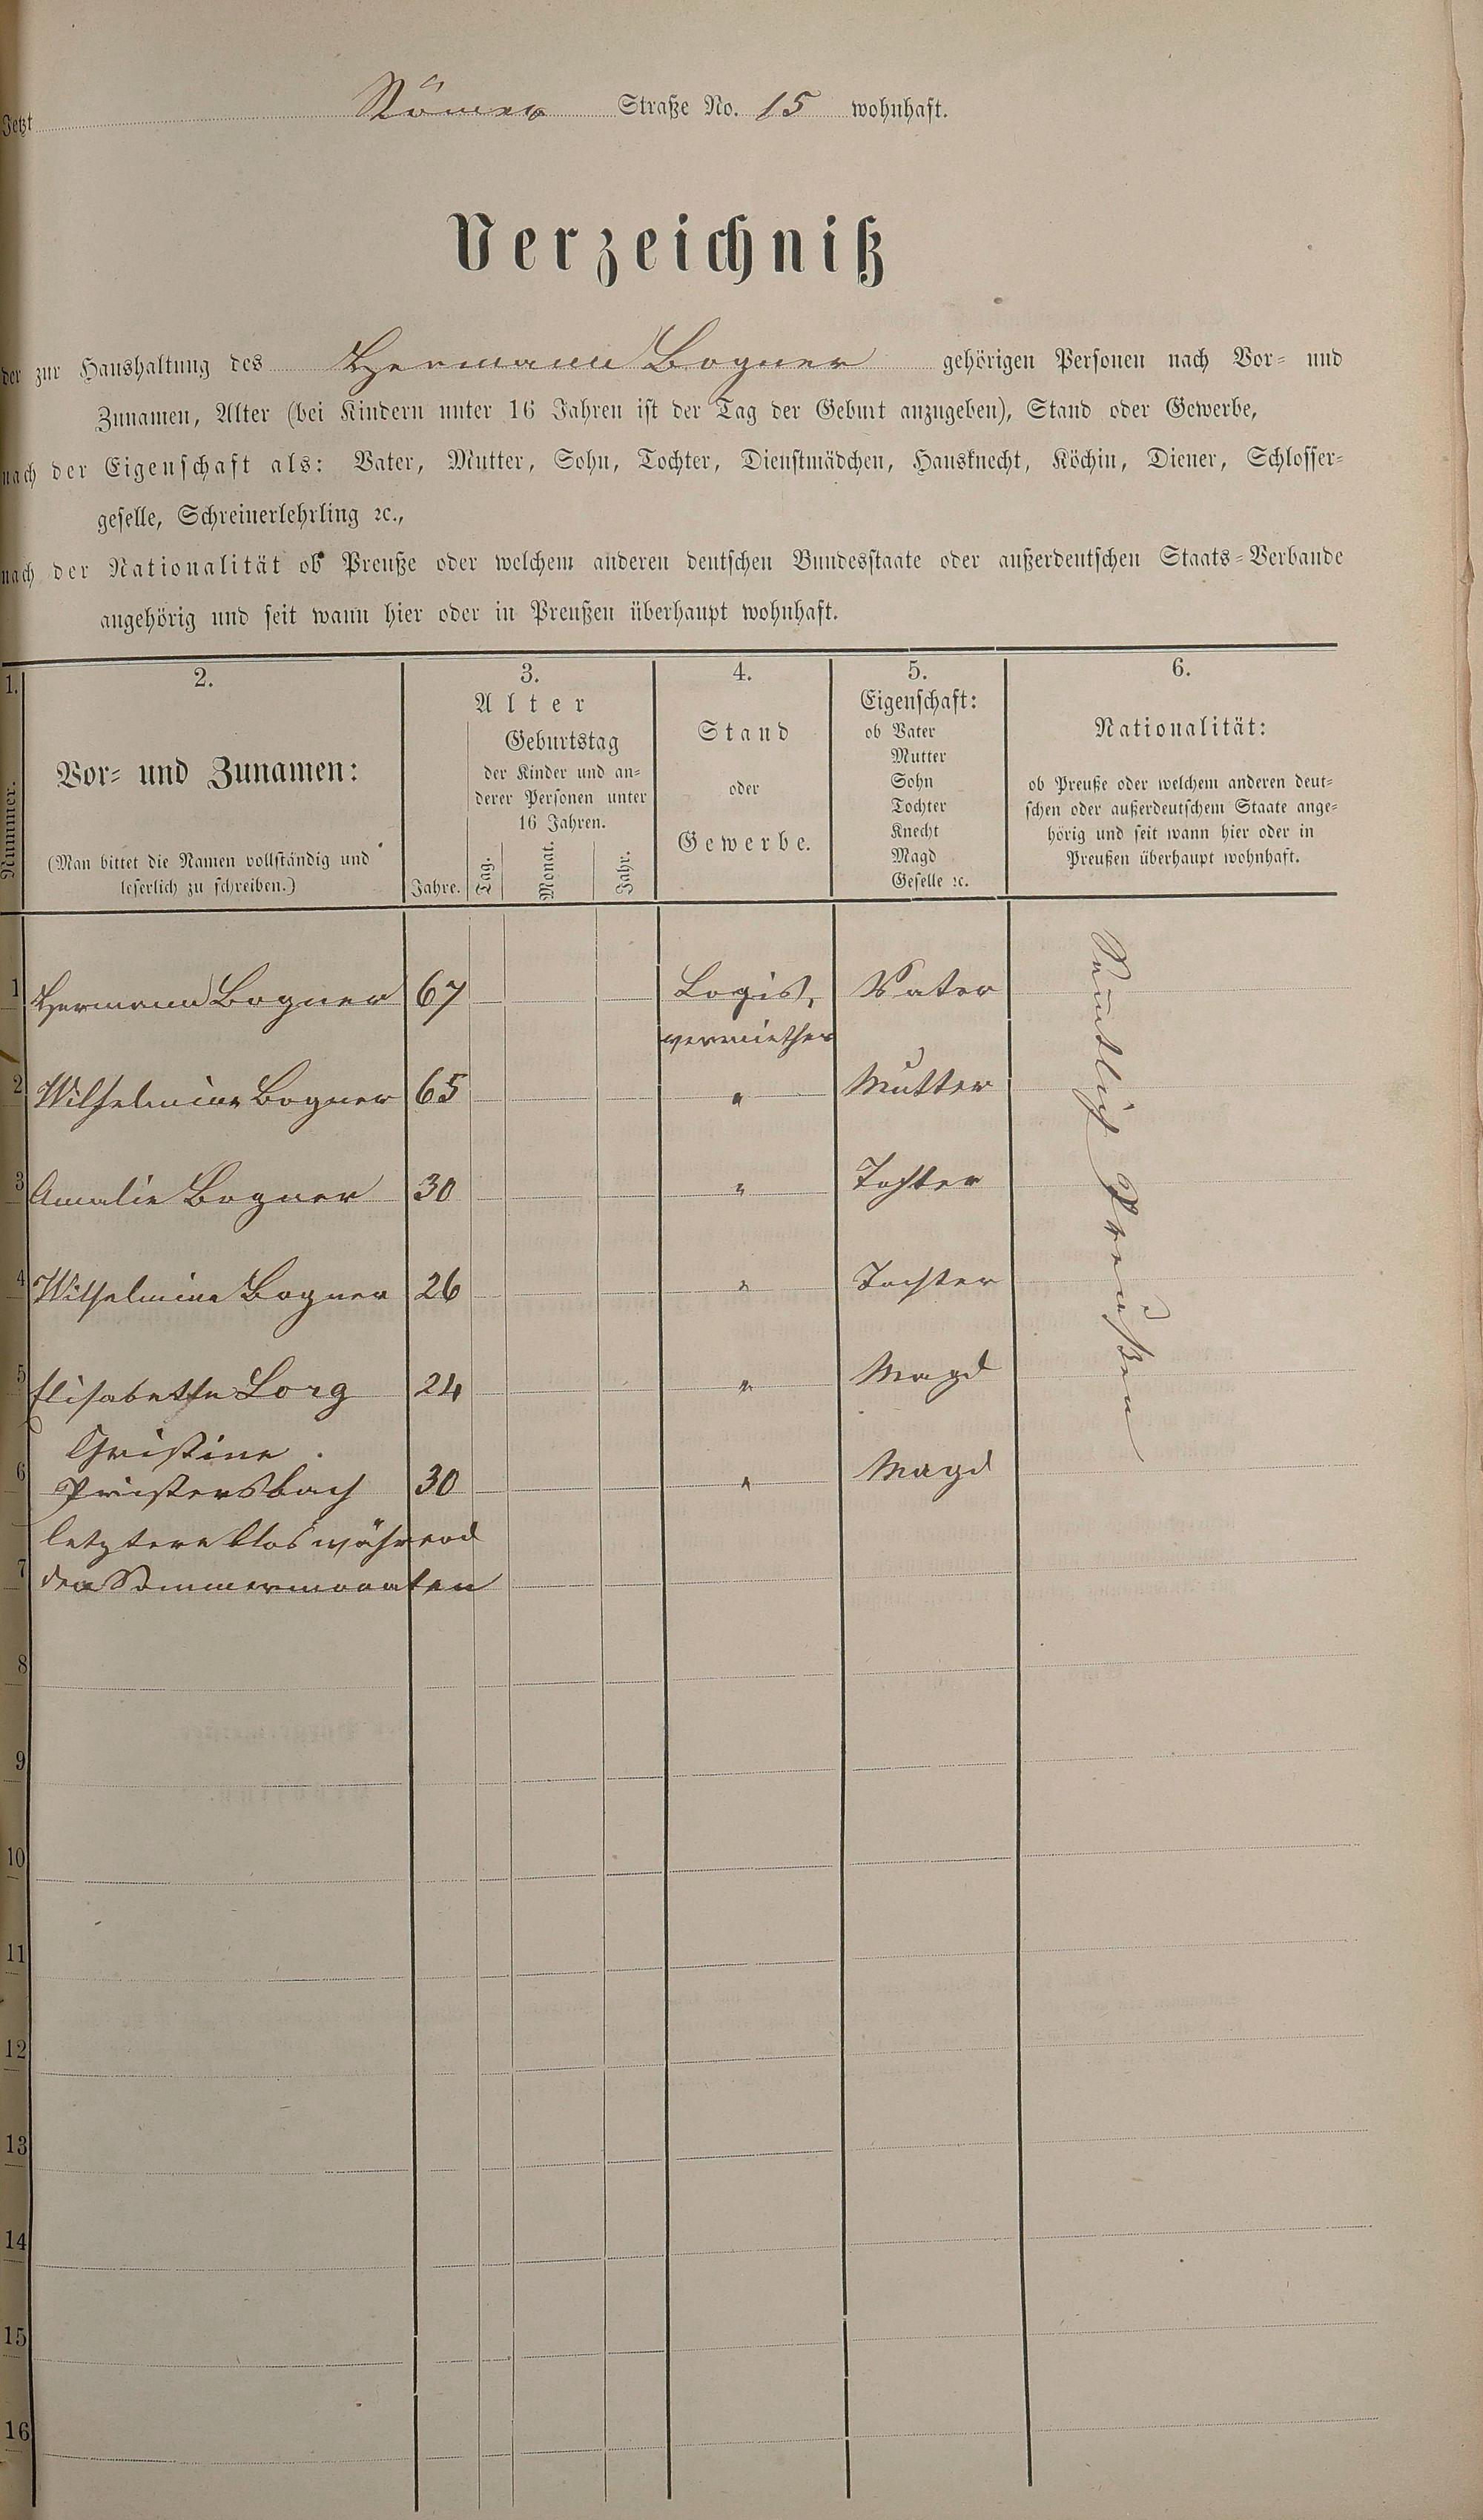 Jetzt Römer Straße No. 15 wohnhaft.
Verzeichniß
der zur Haushaltung des Hermann Bogner gehörigen Personen nach Vor- und
Zunamen, Alter (bei Kindern unter 16 Jahren ist der Tag der Geburt anzugeben), Stand oder Gewerbe,
nach der Eigenschaft als: Vater, Mutter, Sohn, Tochter, Dienstmädchen, Hausknecht, Köchin, Diener, Schlosser-
geselle, Schreinerlehrling ꝛc.,
nach der Nationalität ob Preuße oder welchem anderen deutschen Bundesstaate oder außerdeutschen Staats-Verbande
angehörig und seit wann hier oder in Preußen überhaupt wohnhaft.
1.
Nummer.
2.
Vor- und Zunamen:
(Man bittet die Namen vollständig und
leserlich zu schreiben.)
3.
Alter
Geburtstag
der Kinder und an-
derer Personen unter
16 Jahren.
Jahre. Tag. Monat. Jahr.
4.
Stand
oder
Gewerbe.
5.
Eigenschaft:
ob Vater
Mutter
Sohn
Tochter
Knecht
Magd
Geselle ꝛc.
6.
Nationalität:
ob Preuße oder welchem anderen deut-
schen oder außerdeutschem Staate ange-
hörig und seit wann hier oder in
Preußen überhaupt wohnhaft.
1 Hermann Bogner 67 Logis, Vater
vermiether
2 Wilhelmine Bogner 65 " Mutter
3 Amalie Bogner 30 " Tochter
4 Wilhelmine Bogner 26 " Tochter
5 Elisabethe Lorg 24 " Magd
Christine
6 Pristersbach 30 " Magd
letztere blos während
7 den Sommermonaten
Sämtlich Preußen
8
9
10
11
12
13
14
15
16